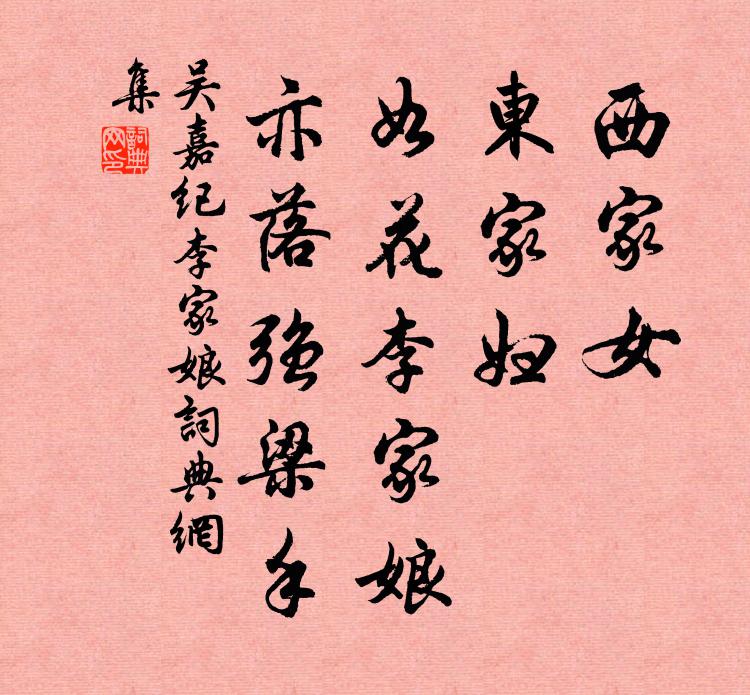 西家女
東家婦
如花李家娘
亦落強梁手
吴嘉纪李家娘詞典網
集
詞典網印